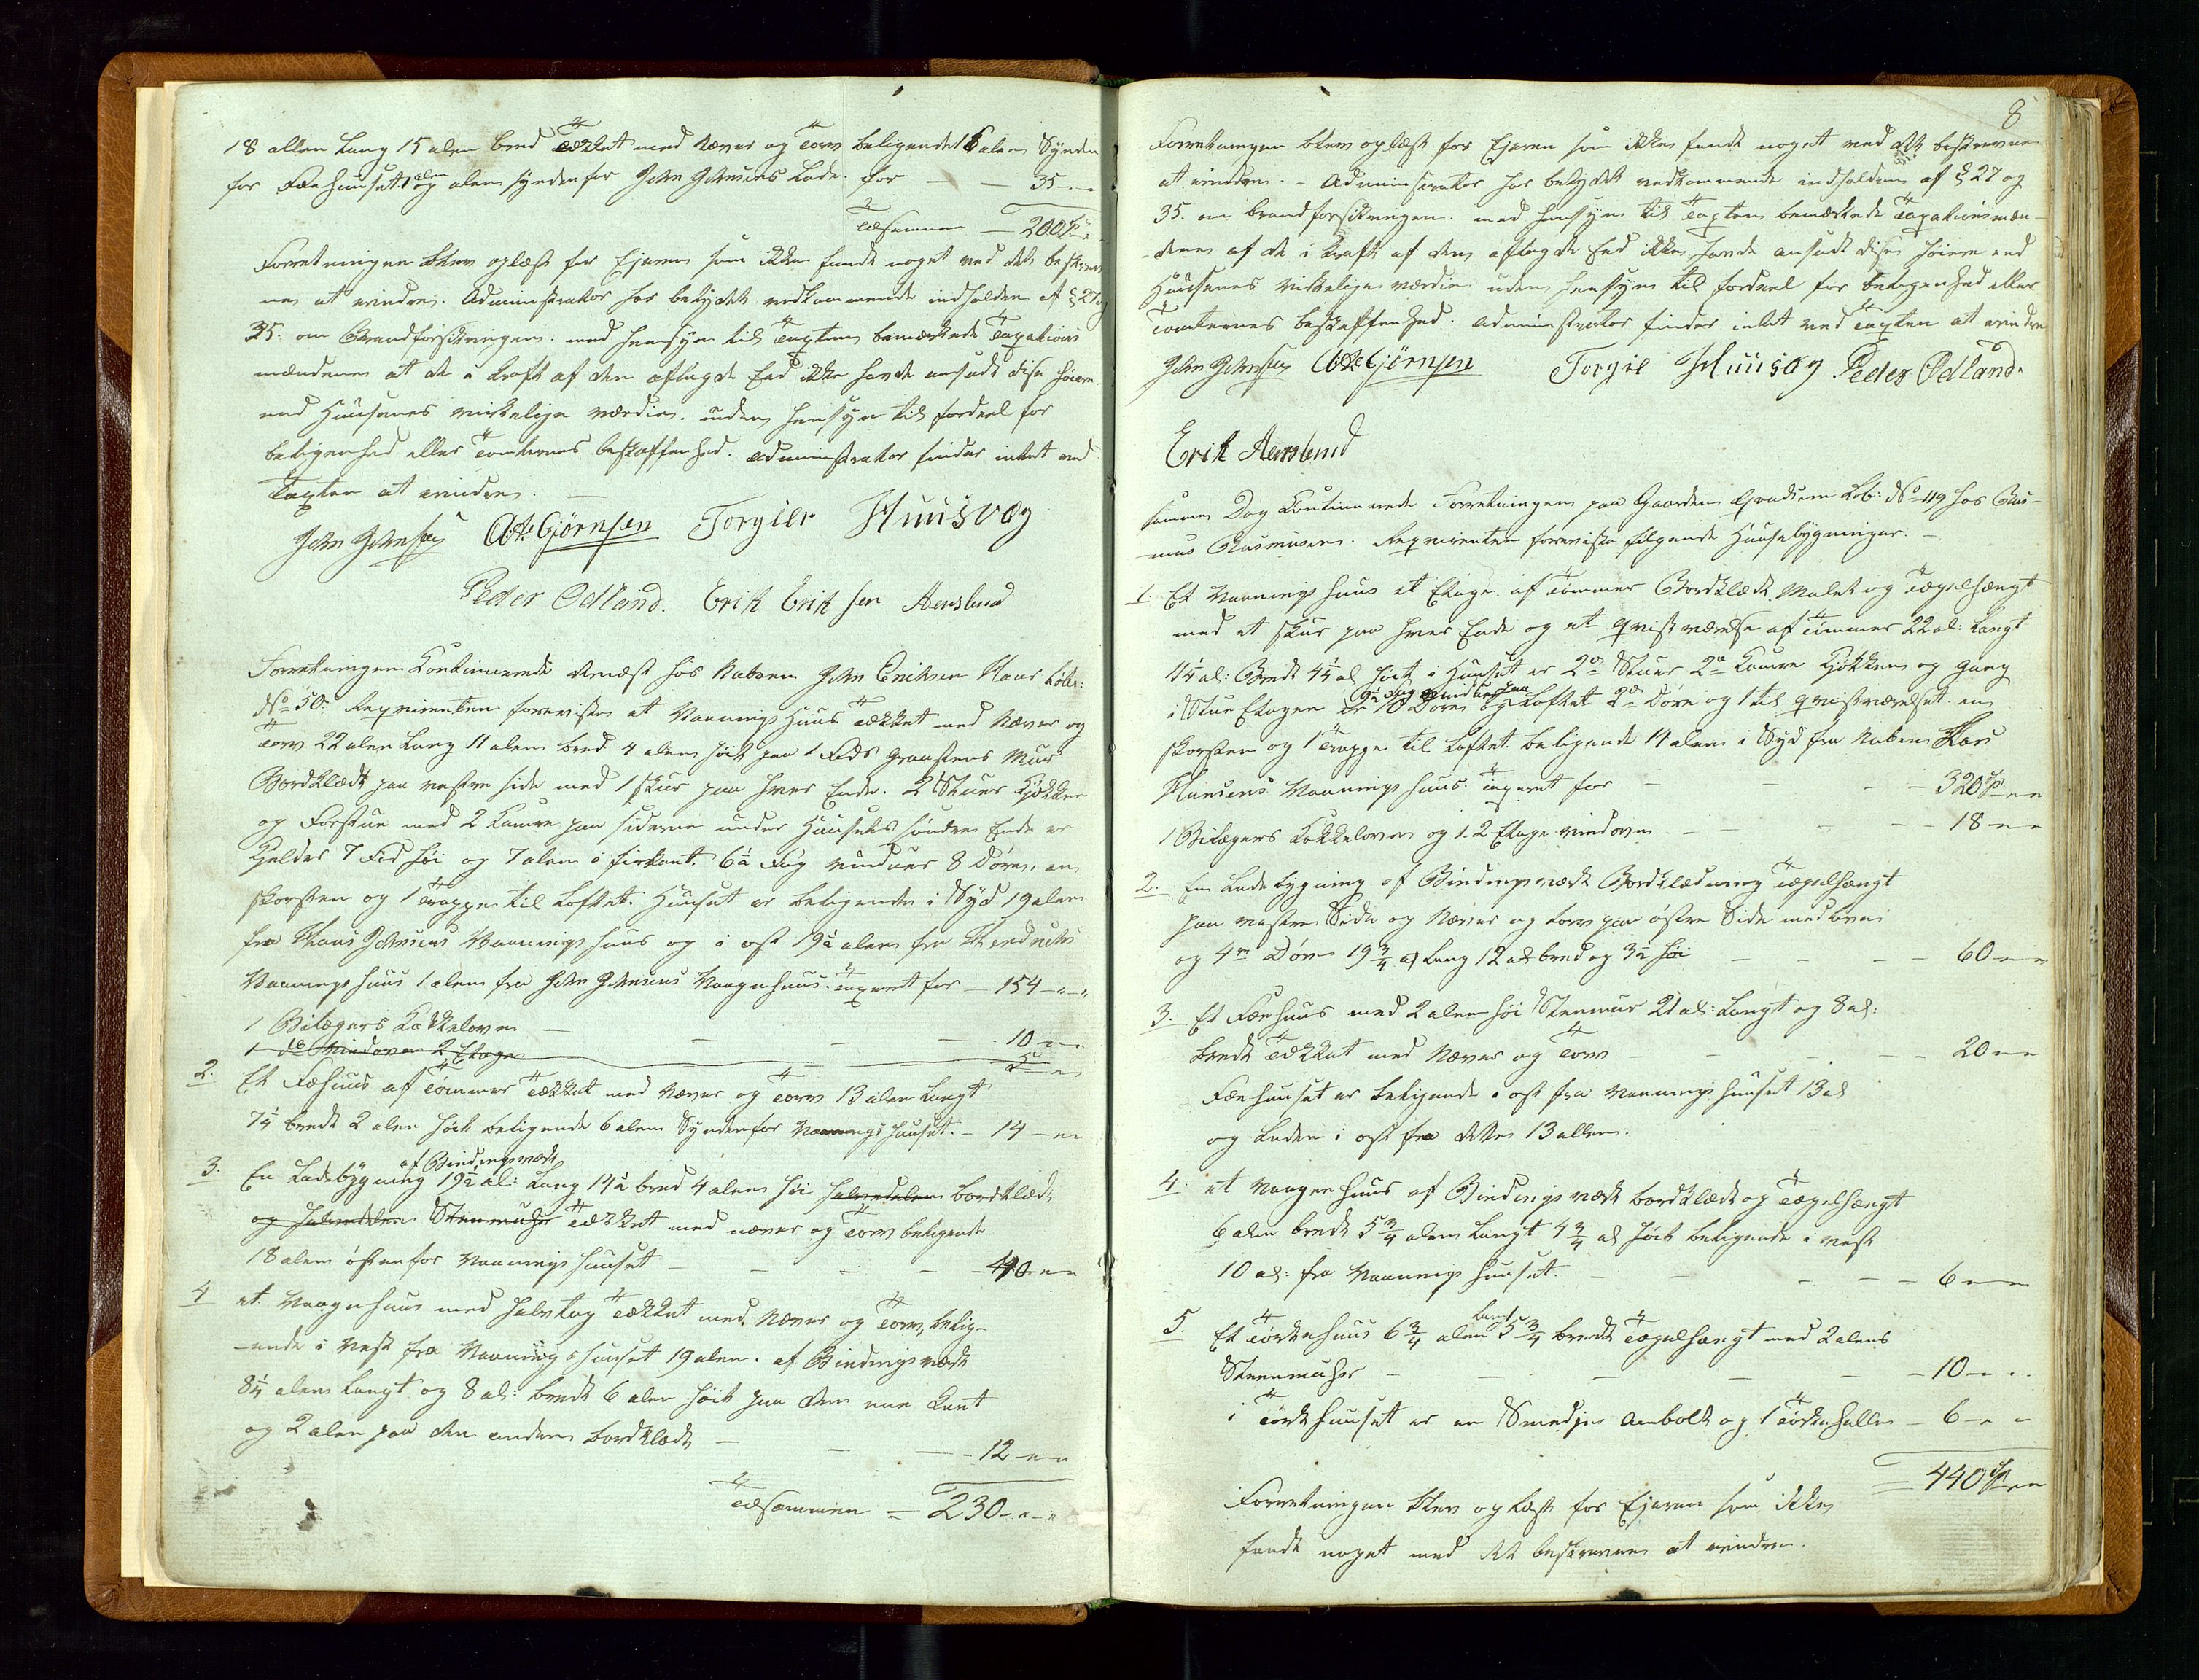 18 allen Lang 15 alen bred Tækket med Næver og Torv beligende 16 alen Synden
for Fæehuuset 1 alen og alen synden for John Johnsens Lade. for — — 35 — —
Tilsammen — 200 Sp —
Forretningen blev oplæst for Ejeren som ikke fandt noget ved det beskrev
ne at erindre. Administrator har betydet vedkommende indholden af § 27 og
35. om Brandforsikringen. med hensyn til Taxten bemærkede Taxations
mændenes at de i kraft af den aflagde Eed ikke havde ansadt disse höiere
end Huusenes virkelige værdie. uden hensyn til fordeel for
beligenhed eller Tomternes beskaffenhed. administrator finder intet ved
Taxten at erindre. —
John Johnsen O. A. Gjörnsen Torgier Huusvog
Peder Ødland. Erik Eriksen Aenslund
Forretningen Kontinuerede dernæst hos Naboen John Eriksen Haar Løbe:
No 50. Reqvirenten foreviste et Vaanings Huus Tækket med Næver og
Torv 22 alen Lang 11 alen bred 4 alen höit paa 1 Fods Graasteens Mur
Bordklædt paa vestre side med 1 skur paa hver Ende. 2 Stuer Kjökken
og Forstue med 2 Kamre paa siderne under Huusets söndre Ende er
Kjelder 7 Fod höi og 7 alen i firkant. 6 à Fag vinduer 8 Döre, en
skorsten og 1 Trappe til Loftet. Huuset er beligende i Syd 19 alen
fra Hans Johnsens Vaanings huus og i ost 19½ alen fra Hendrichs
Vaanings huus 1 alen fra John Johnsens Vaagnhuus. Taxeret for — 154 — " — "
1 Bilægers Kakkelovn — — — — 10 — —
1 do Vindovn 2 Etager — — — 5 — —
2. Et Fæhuus af Tömmer Tækket med Næver og Torv 13 alen Langt
7½ bredt 2 alen höit beligende 6 alen Synden for Vaanings huuset. — 14 — —
af Bindingsværk
3. En Ladebygning 19½ al: Lang 14½ bred 4 alen höi halvedelen bordklædt
og halvedelen Steenmuhr Tækket med næver og Torv beligende
18 alen östen for Vaanings huuset — — — — 40 — —
4 et Vaagnhuus med halvtag Tækket med Næver og Torv, belig-
-ende i Vest fra Vaanings huuset 19 alen. af Bindingsværk
8½ alen Langt og 8 al: bredt 6 alen höit paa den ene Kant
og 2 alen paa den anden bordklædt — — — 12 — —
Tilsammen = 230 — " — "
8
Forretningen blev oplæst for Ejeren som ikke fandt noget ved det beskrevne
at erindre. — Administrator har betydet vedkommende indholden af § 27 og
35. om brandforsikringen. med hensyn til Taxten bemærkede Taxationsmæn-
-denes at de i kraft af den aflagde Eed ikke havde ansadt disse höiere end
Huusenes virkelige værdie. uden hensyn til fordeel for beligenhed eller
Tomternes beskaffenhed. administrator finder intet ved Taxten at erindre
John Johnsen O. A. Gjörnsen Torgie Huusog Peder Ødland.
Erik Aenslund
samme Dag Kontinuerede Forretningen paa Gaarden Lob: No 49 hos Ras-
-mus Rasmusen. Reqvirenten foreviste fölgende Huusebygninger. —
1. Et Vaanings huus et Etage. af Tömmer Bordklædt. Malet og Tægelhængt
med et skur paa hver Ende og et qvistværelse af Tömmer 22 al: Langt
11½ al: Bredt 4½ al höit i Huuset er 2de Stuer 2de Kamre Kjökken og Gang
9½ Fag vinduer paa
i Stue Etagen er 10 Döre og Loftet 2de Döre og 1 til qvistværelset en
skorsten og 1 Trappe til Loftet. beligende 14 alen i Syd fra Naboen Lars
Hansens Vaanings huus. Taxeret for — — — — 320 Sp — —
1 Bilægers Kakkelovn og 1. 2 Etage vindovn — — — 18 — —
2. En Ladebygning af Bindingsværk Bordklædning Tægelhængt
paa vestre Side og Næver og Torv paa östre Side med
og 4re Döre 19¾ al Lang 12 al bred og 3½ höi — — — — 60 — —
3. Et Fæehuus med 2 alen höi Steenmur 21 al: Langt og 8 al:
bredt Tækket med Næver og Torv — — — — 20 — —
Fæehuuset er beligende i ost fra Vaanings huuset 13 al
og Laden i ost fra dette 13 allen.
4. et Vaagen huus af Bindingsværk bordklædt og Tægelhængt
6 alen bredt 5¾ alen Langt 4¾ al höit beligende i vest
10 al: fra Vaanings huuset. — — — — 6 — —
5 Et Törkehuus 6¾ alen Langt 5¾ bredt Tægelhængt med 2 alens
Steenmuhr — — — — — 10 — —
i Törkhuuset er en Smedje Ambolt og 1 Törkehelle — 6 — —
= 440 Sp — —
Forretningen blev oplæst for Ejeren som ikke
fandt noget med det beskrevne at erindre.